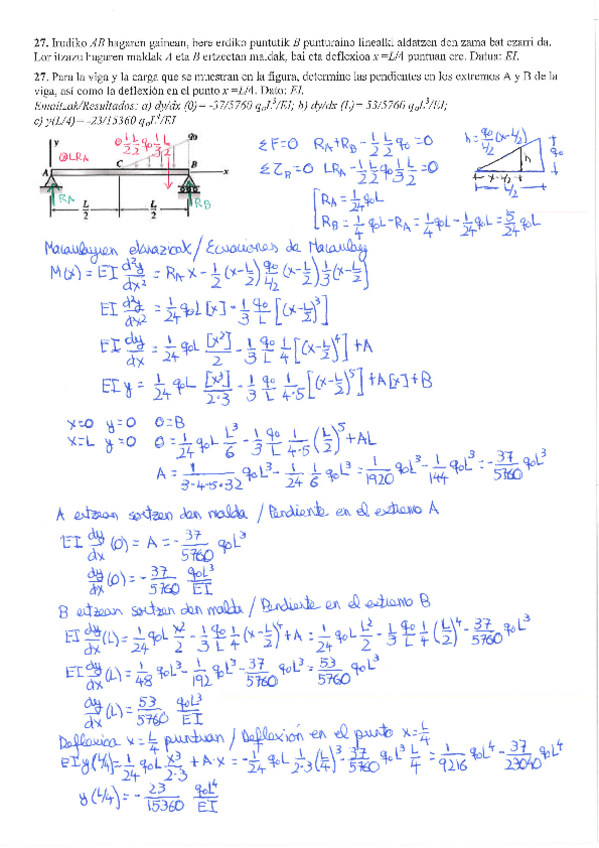 27. Irudiko AB hagaren gainean, bere erdiko puntutik B punturaino linealki aldatzen den zama bat ezarri da.
Lor itzazu hagaren maldak A eta B ertzeetan maldak, bai eta deflexioa x=L/4 puntuan ere. Datua: EI.
27. Para la viga y la carga que se muestran en la figura, determine las pendientes en los extremos A y B de la
viga, así como la deflexión en el punto x=L/4. Dato: EI.
Emaitzak/Resultados: a) dy/dx (0)= -37/5760 q₀L³/EI; b) dy/dx (L)= 53/5760 q₀L³/EI;
c) y(L/4)= -23/15360 q₀L⁴/EI
y
⊕ 1/2 L/2 q₀ 1/3 L/2
q₀
⊕LR_A
C
A
B
x
R_A
R_B
L/2
L/2
ΣF=0 R_A+R_B - 1/2 L/2 q₀ = 0
Στ_B=0 LR_A - 1/2 L/2 q₀ 1/3 L/2 = 0
R_A = 1/24 q₀L
R_B = 1/4 q₀L - R_A = 1/4 q₀L - 1/24 q₀L = 5/24 q₀L
h = q₀/(L/2) (x-L/2)
h
q₀
x-L/2
L/2
Macaulayren ekuazioak / Ecuaciones de Macaulay
M(x) = EI d²y/dx² = R_A x - 1/2 (x-L/2) q₀/(L/2) (x-L/2) 1/3 (x-L/2)
EI d²y/dx² = 1/24 q₀L [x] - 1/3 q₀/L [(x-L/2)³]
EI dy/dx = 1/24 q₀L [x²]/2 - 1/3 q₀/L 1/4 [(x-L/2)⁴] + A
EI y = 1/24 q₀L [x³]/(2·3) - 1/3 q₀/L 1/(4·5) [(x-L/2)⁵] + A[x] + B
x=0 y=0 0=B
x=L y=0 0 = 1/24 q₀L L³/6 - 1/3 q₀/L 1/(4·5) (L/2)⁵ + AL
A = 1/(3·4·5·32) q₀L³ - 1/24 1/6 q₀L³ = 1/1920 q₀L³ - 1/144 q₀L³ = -37/5760 q₀L³
A ertzean sortzen den malda / Pendiente en el extremo A
EI dy/dx (0) = A = -37/5760 q₀L³
dy/dx (0) = -37/5760 q₀L³/EI
B ertzean sortzen den malda / Pendiente en el extremo B
EI dy/dx (L) = 1/24 q₀L x²/2 - 1/3 q₀/L 1/4 (x-L/2)⁴ + A = 1/24 q₀L L²/2 - 1/3 q₀/L 1/4 (L/2)⁴ - 37/5760 q₀L³
EI dy/dx (L) = 1/48 q₀L³ - 1/192 q₀L³ - 37/5760 q₀L³ = 53/5760 q₀L³
dy/dx (L) = 53/5760 q₀L³/EI
Deflexioa x=L/4 puntuan / Deflexión en el punto x=L/4
EI y(L/4) = 1/24 q₀L x³/(2·3) + A·x = -1/24 q₀L 1/(2·3) (L/4)³ - 37/5760 q₀L³ L/4 = 1/9216 q₀L⁴ - 37/23040 q₀L⁴
y(L/4) = -23/15360 q₀L⁴/EI